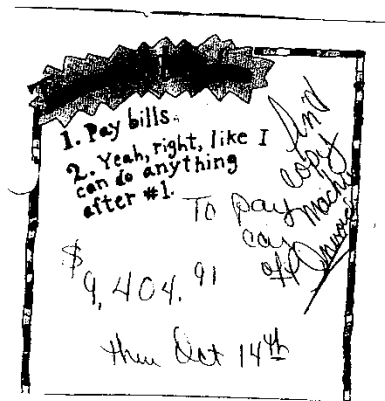 1. Pay bills.
2. Yeah, right, like I
can do anything
after #1.
To pay
car
off
And
copy
machine
$9,404.91
thru Oct 14th